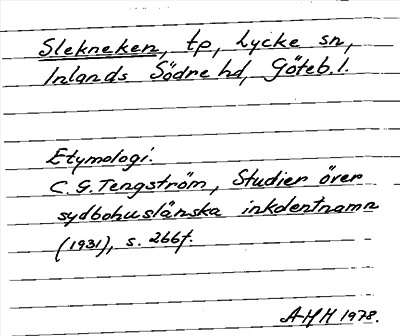 Slekneken, tp, Lycke sn,
Inlands Södre hd, Göteb. l.
Etymologi.
C. G. Tengström, Studier över
sydbohuslänska inkolentnamn
(1931), s. 266f.
AHH 1978.